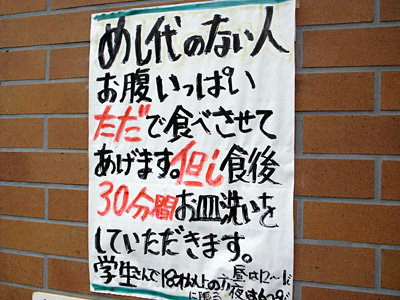 めし代のない人
お腹いっぱい
ただで食べさせて
あげます。但し食後
30分間お皿洗いを
していただきます。
学生さんで18才以上の方に限る
昼は12～
夜は6～9